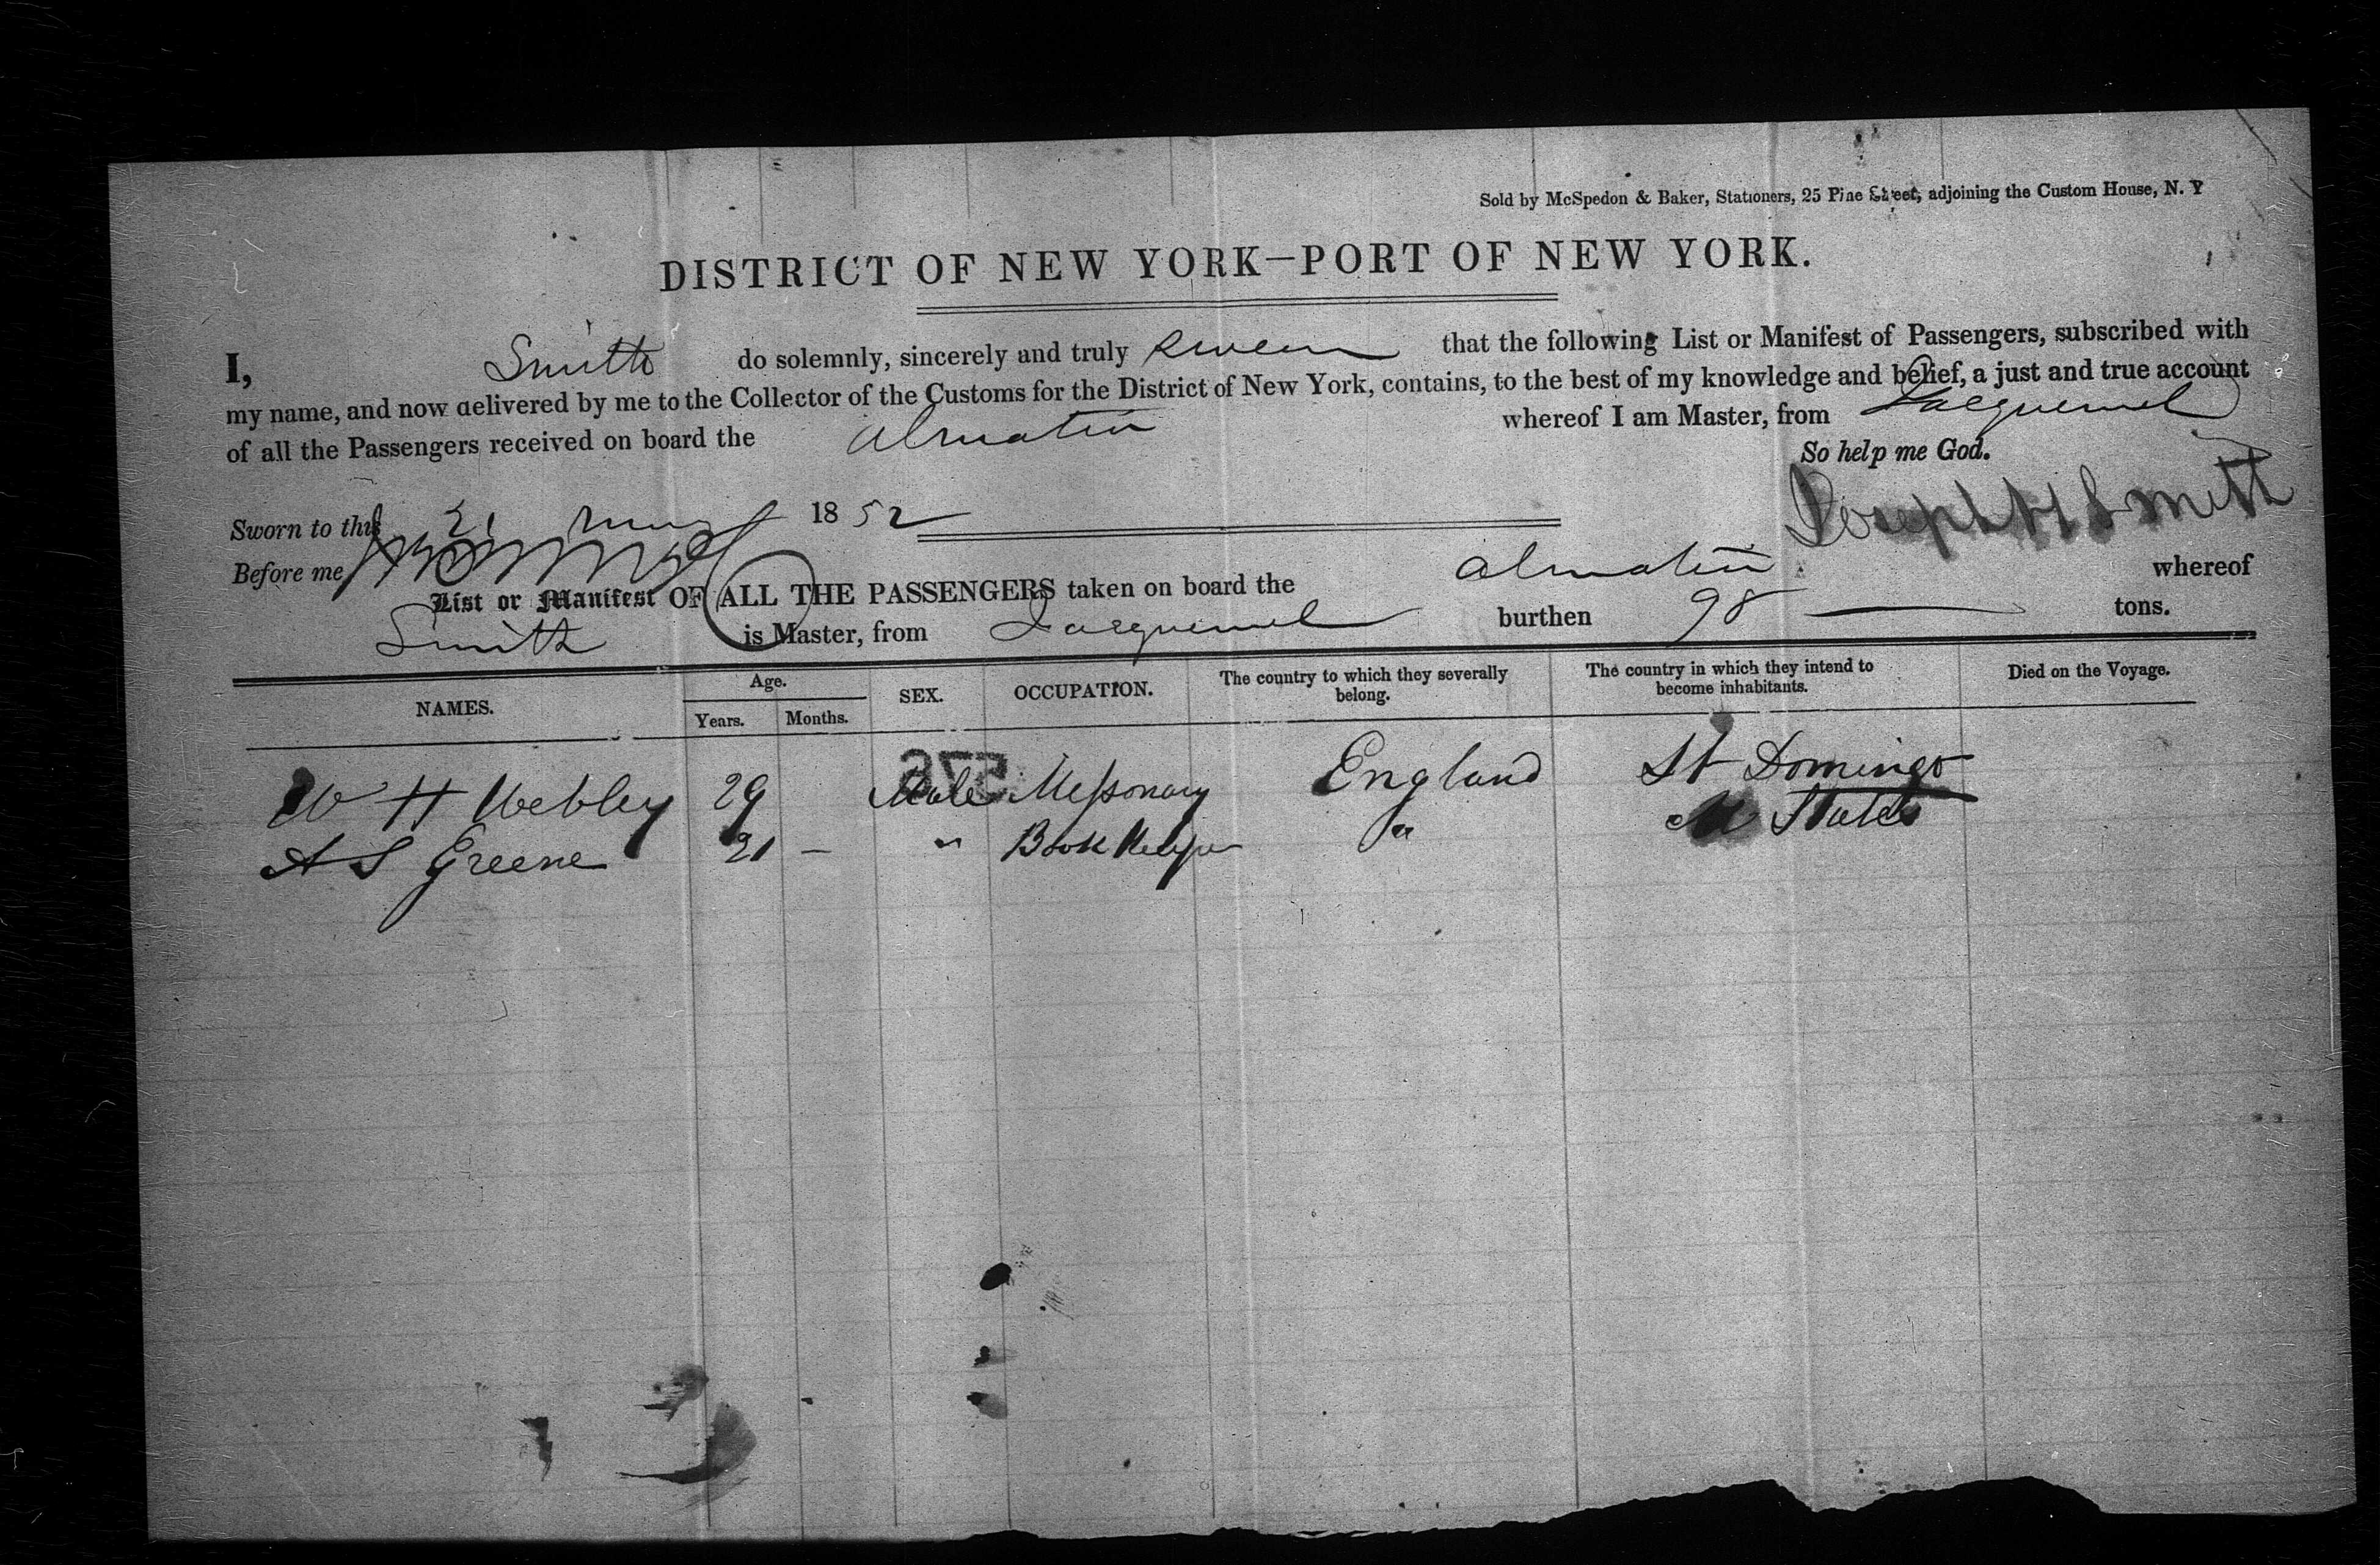 Sold by McSpedon & Baker, Stationers, 25 Pine Street, adjoining the Custom House, N. Y
DISTRICT OF NEW YORK—PORT OF NEW YORK.
I, Smith do solemnly, sincerely and truly swear that the following List or Manifest of Passengers, subscribed with
my name, and now delivered by me to the Collector of the Customs for the District of New York, contains, to the best of my knowledge and belief, a just and true account
of all the Passengers received on board the Almatia whereof I am Master, from Jacquemel
So help me God.
Sworn to this 21 May 1852
Joseph H Smith
Before me
List or Manifest OF ALL THE PASSENGERS taken on board the Almatia whereof
Smith is Master, from Jacquemel burthen 98 tons.
NAMES. Age. Years. Months. SEX. OCCUPATION. The country to which they severally belong. The country in which they intend to become inhabitants. Died on the Voyage.
576
W H Webley 29 Male Messonary England St Domingo
A S Greene 21 — " Book Keeper " U States